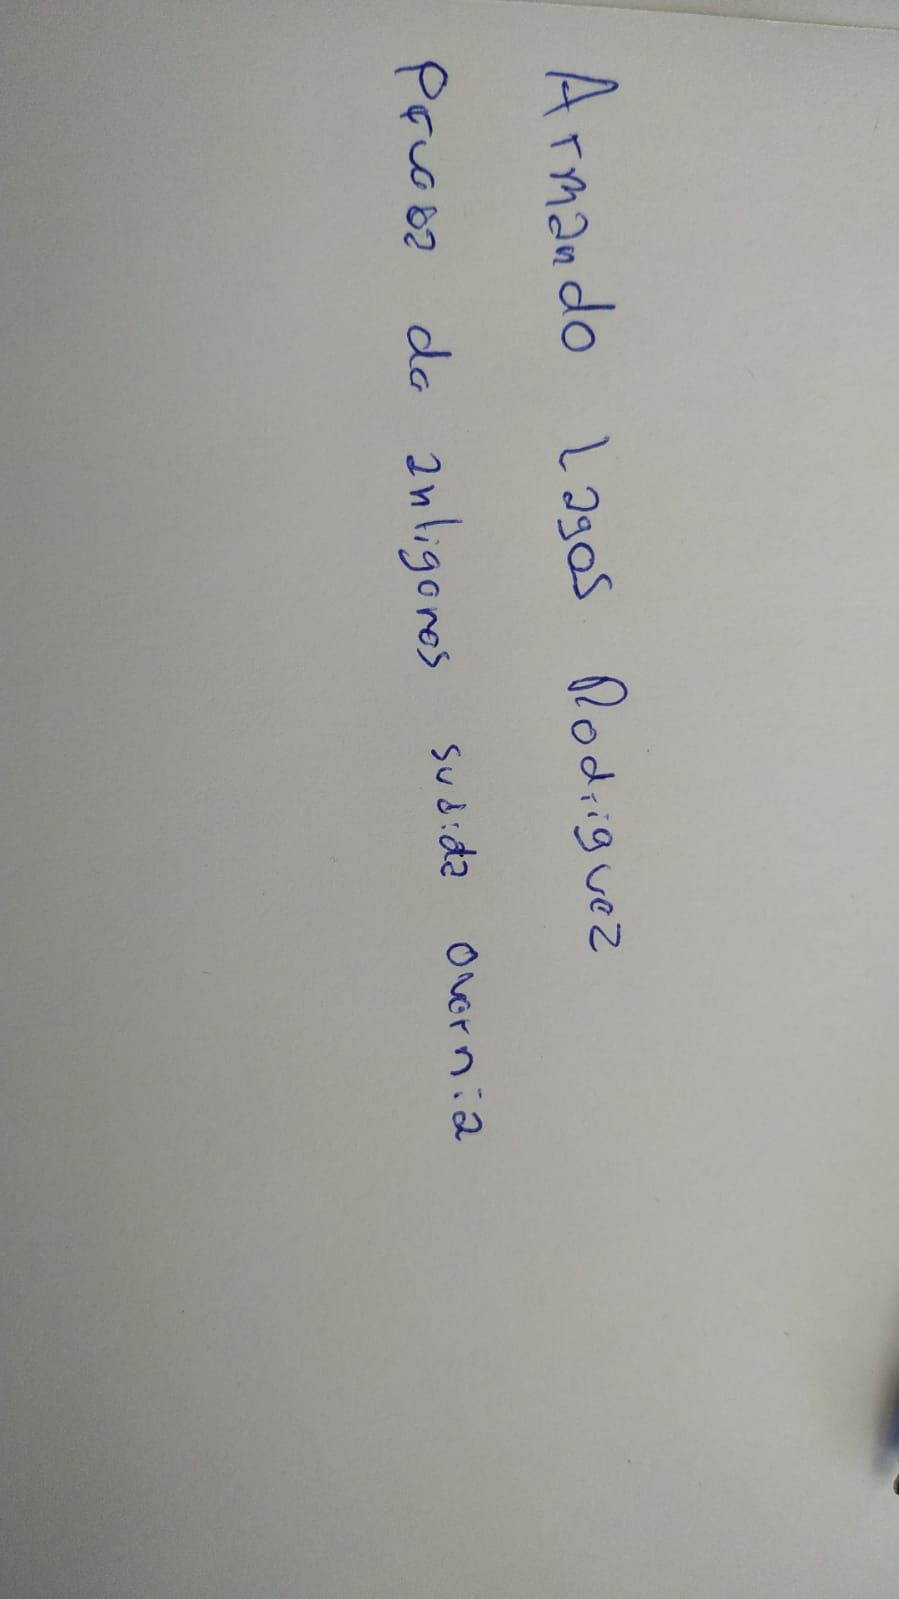 Armando Lagos Rodriguez
Prueba de antigenos subida overnia